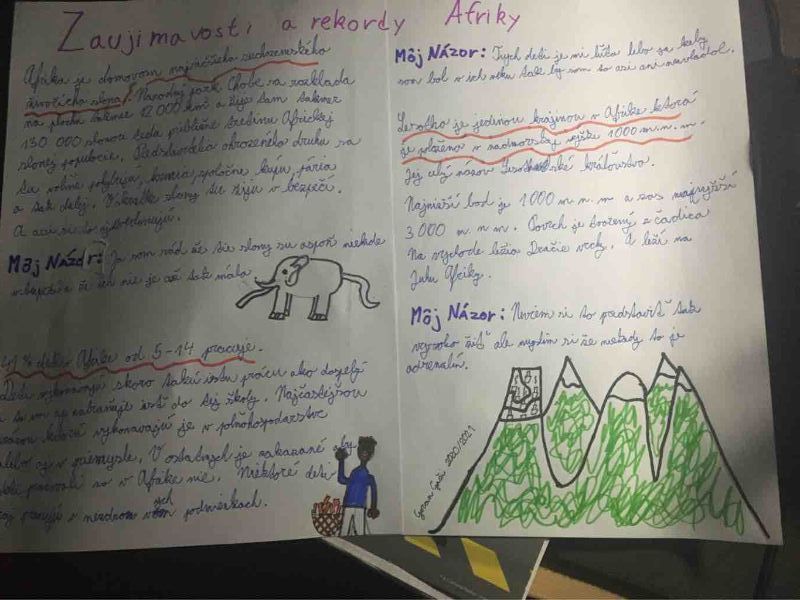 Zaujímavosti a rekordy Afriky
Afrika je domovom najväčšieho suchozemského
živočícha slona! Národný park Chobe sa rozklada
na ploche takmer 12 000 km a žije tam takmer
130 000 slonov teda približne tretinu Africkej
slonej populácie. Predstavitelia ohrozeného druhu sa
tu voľne pohybujú, kŕmia, spoločne kúpu, pária
a tak ďalej. V skratke slony tu žijú v bezpečí.
A asi si to uvedomujú.
Môj Názor: Ja som rád že tie slony su aspoň niekde
v bezpečí a že ich nie je až tak málo
41 % detí Afrike od 5-14 pracuje.
Deti vykonávajú skoro takú istú prácu ako dospelí
a to im aj zabraňuje ísť do tej školy. Najčastejšou
ktorú vykonavajú je v poľnohospodarstve
alebo aj v priemysle. V ostatných je zakazané aby
deti pracovali no v Afrike nie. Niektoré deti
pracujú v nezdravých podmienkach.
Môj Názor: Tých detí je mi ľúto lebo ja keby
som bol v ich veku tak by som to asi ani nezvládol.
Lesotho je jedinou krajinou v Afrike ktorá
je položena v nadmorskej výške 1000 m.n.m.
Jej celý názov Lesothské kráľovstvo.
Najnižší bod je 1000 m.n.m a zas najvyšší
3000 m.n.m. Povrch je tvorený z čadiča
Na východe ležia Dračie vrchy. A leží na
Juhu Afriky.
Môj Názor: Neviem si to predstaviť tak
vysoko žiť ale myslím si že niekedy to je
adrenalín.
2020/2021